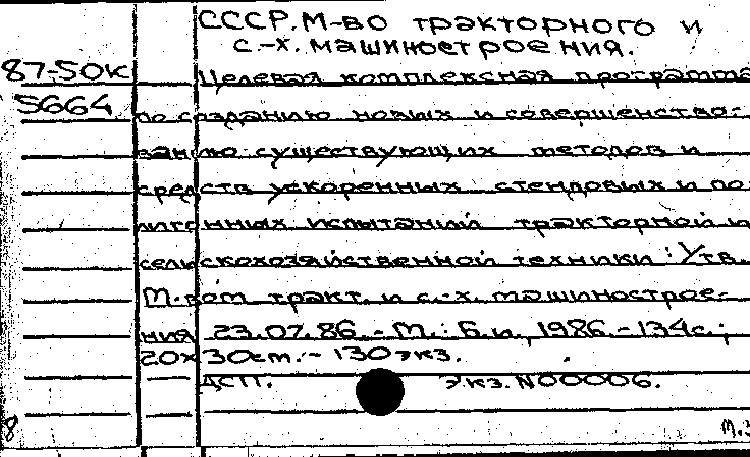 СССР. М-во тракторного и
с.-х. машиностроения.
87-50к
Целевая комплексная программа
5664
по созданию новых и совершенство-
ванию существующих методов и
средств ускоренных стендовых и по-
лигонных испытаний тракторной и
сельскохозяйственной техники: Утв.
М-вом тракт. и с.-х. машинострое-
ния 23.07.86. - М.: Б.и., 1986. - 134с.;
20х30см. - 130экз.
ДСП. Экз. N00006.
8